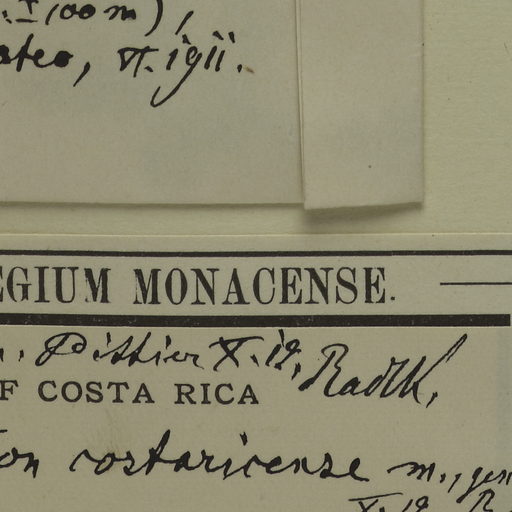 1100 m),
ateo, VI. 1911.
EGIUM MONACENSE.
Pittier X. 12. Radlk.
F COSTA RICA
on costaricense m., gen
X. 12. R